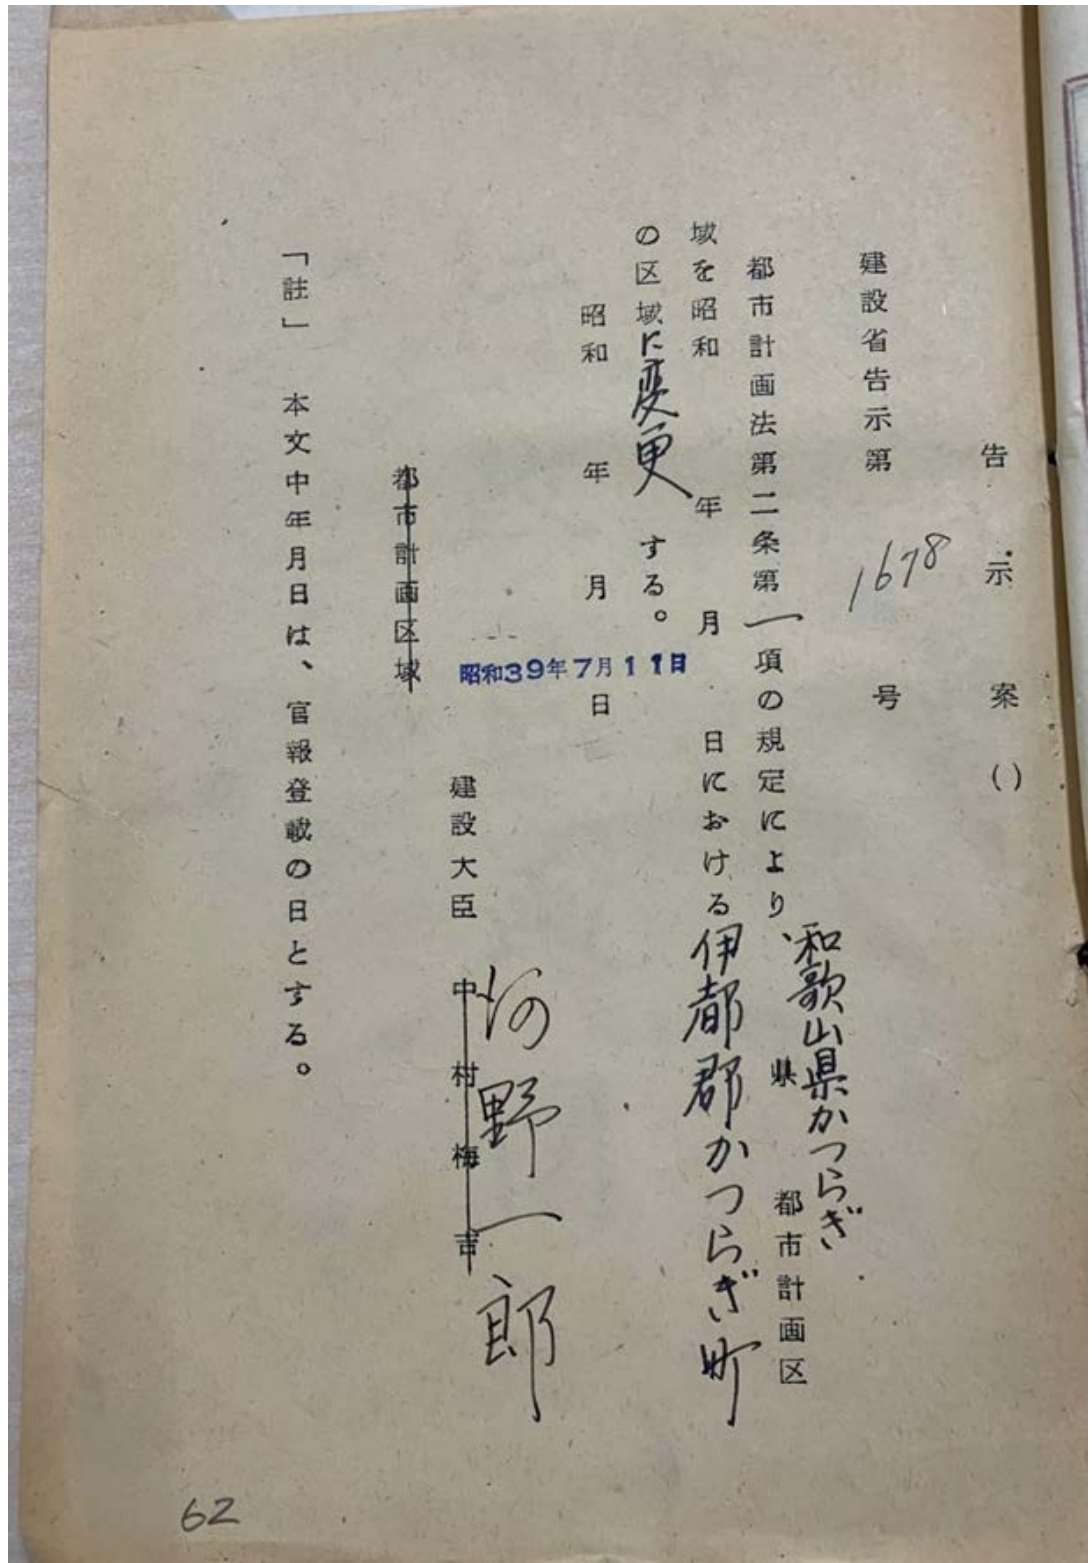 告示案()
建設省告示第1678号
都市計画法第二条第一項の規定により、和歌山県かつらぎ
県
都市計画区
域を昭和 年 月 日における伊都郡かつらぎ町
の区域に変更する。
昭和 年 月 日
昭和39年7月11日
建設大臣 中村梅吉
河野一郎
都市計画区域
「註」 本文中年月日は、官報登載の日とする。
62